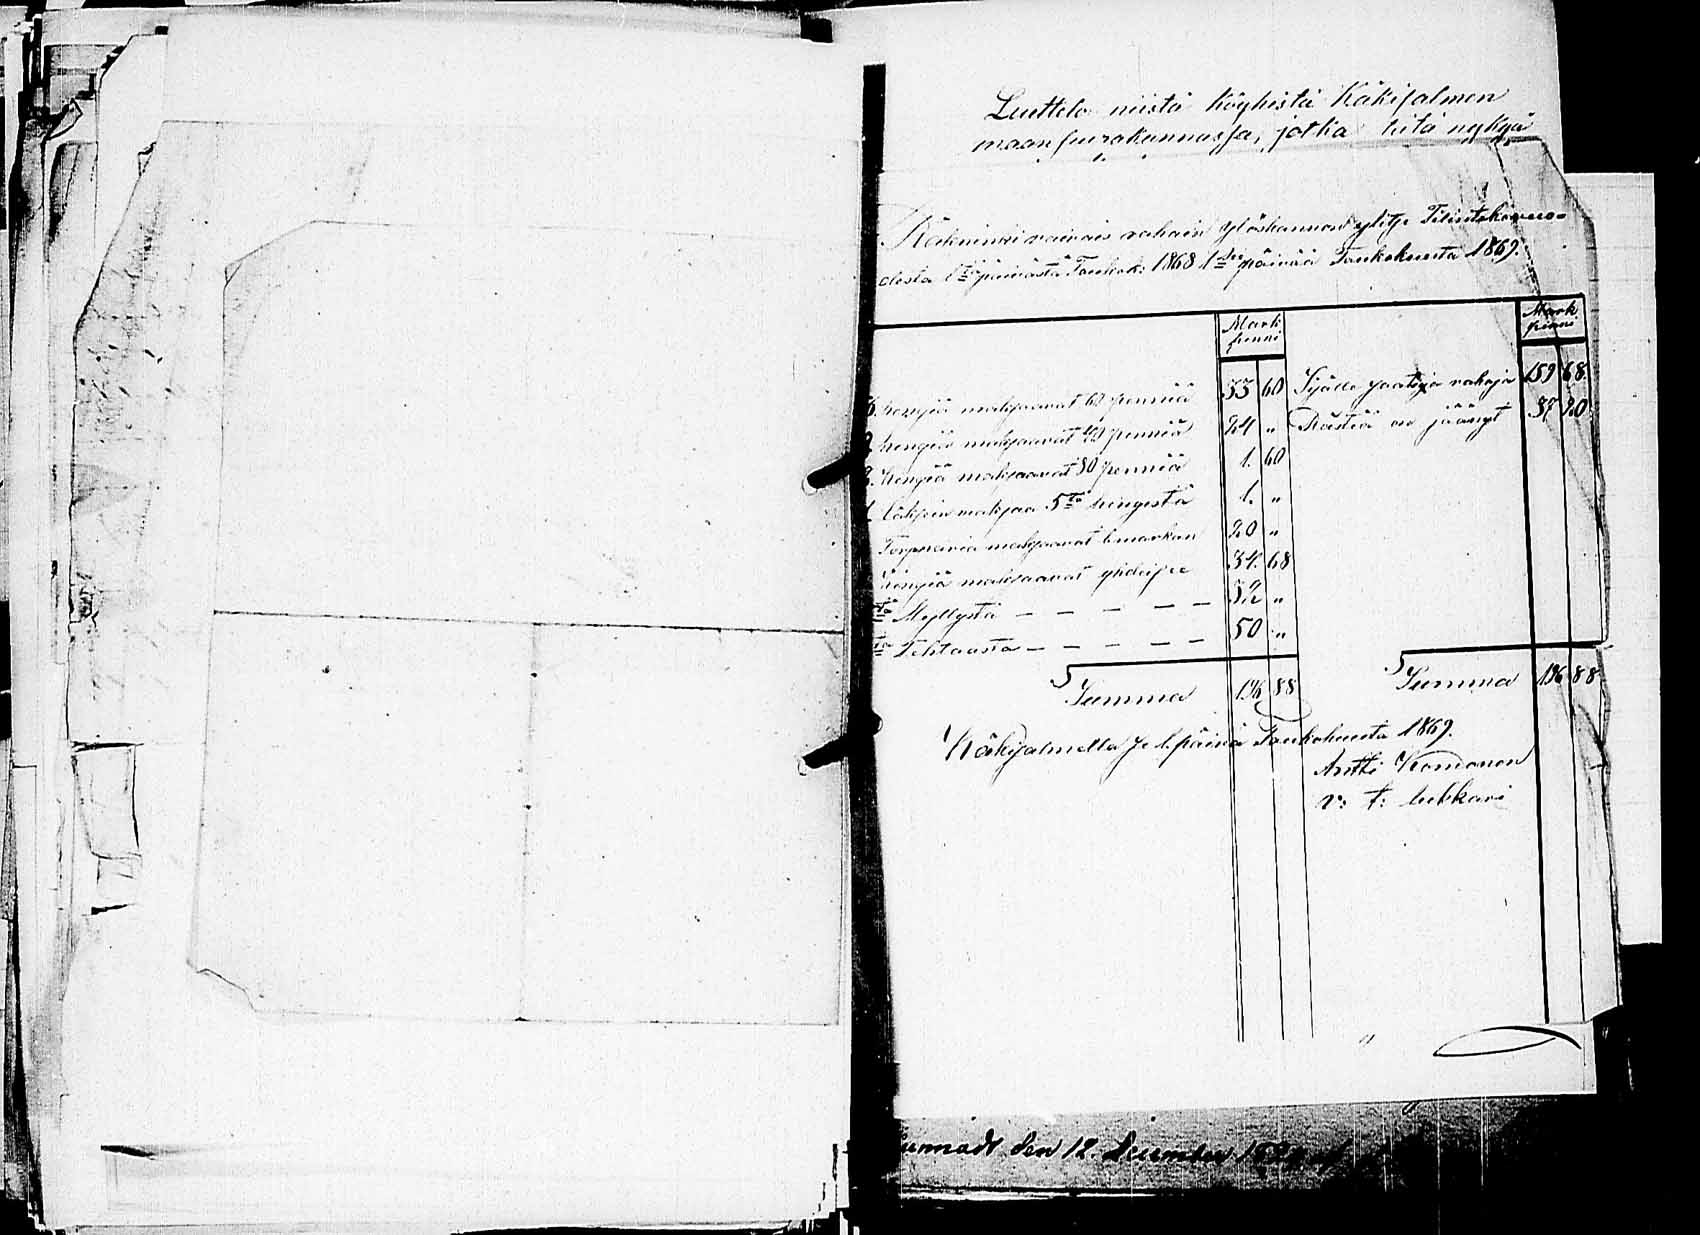 Luettelo niistä köyhistä Käkisalmen
maan seurakunnassa, jotka tätä nykyä
Räkninki vaivais rahain ylöskannon ylitze Tilintekovuo-
desta 1stä päivästä Toukok: 1868 1seen päivää Toukokuusta 1869.
Mark penni
Mark penni
hengiä maksavat 60 penniä 33 60 Sisälle saatuja rahoja 159 68
hengiä maksavat 40 penniä 24 " Rästiä on jäänyt 37 20
hengiä maksavat 80 penniä 1. 60
maksaa 5tä hengestä 1. "
Torpparia maksavat 1 markan 20 "
hengiä maksavat yhdeisse 34. 68
tä Myllystä — — — — — 32 "
ta Tehtaasta — — — — — 50 "
Summa 196 88 Summa 196 88
Käkisalmella se 1. päivä Toukokuusta 1869.
Antti Komonen
v: t: lukkari
den 12. December